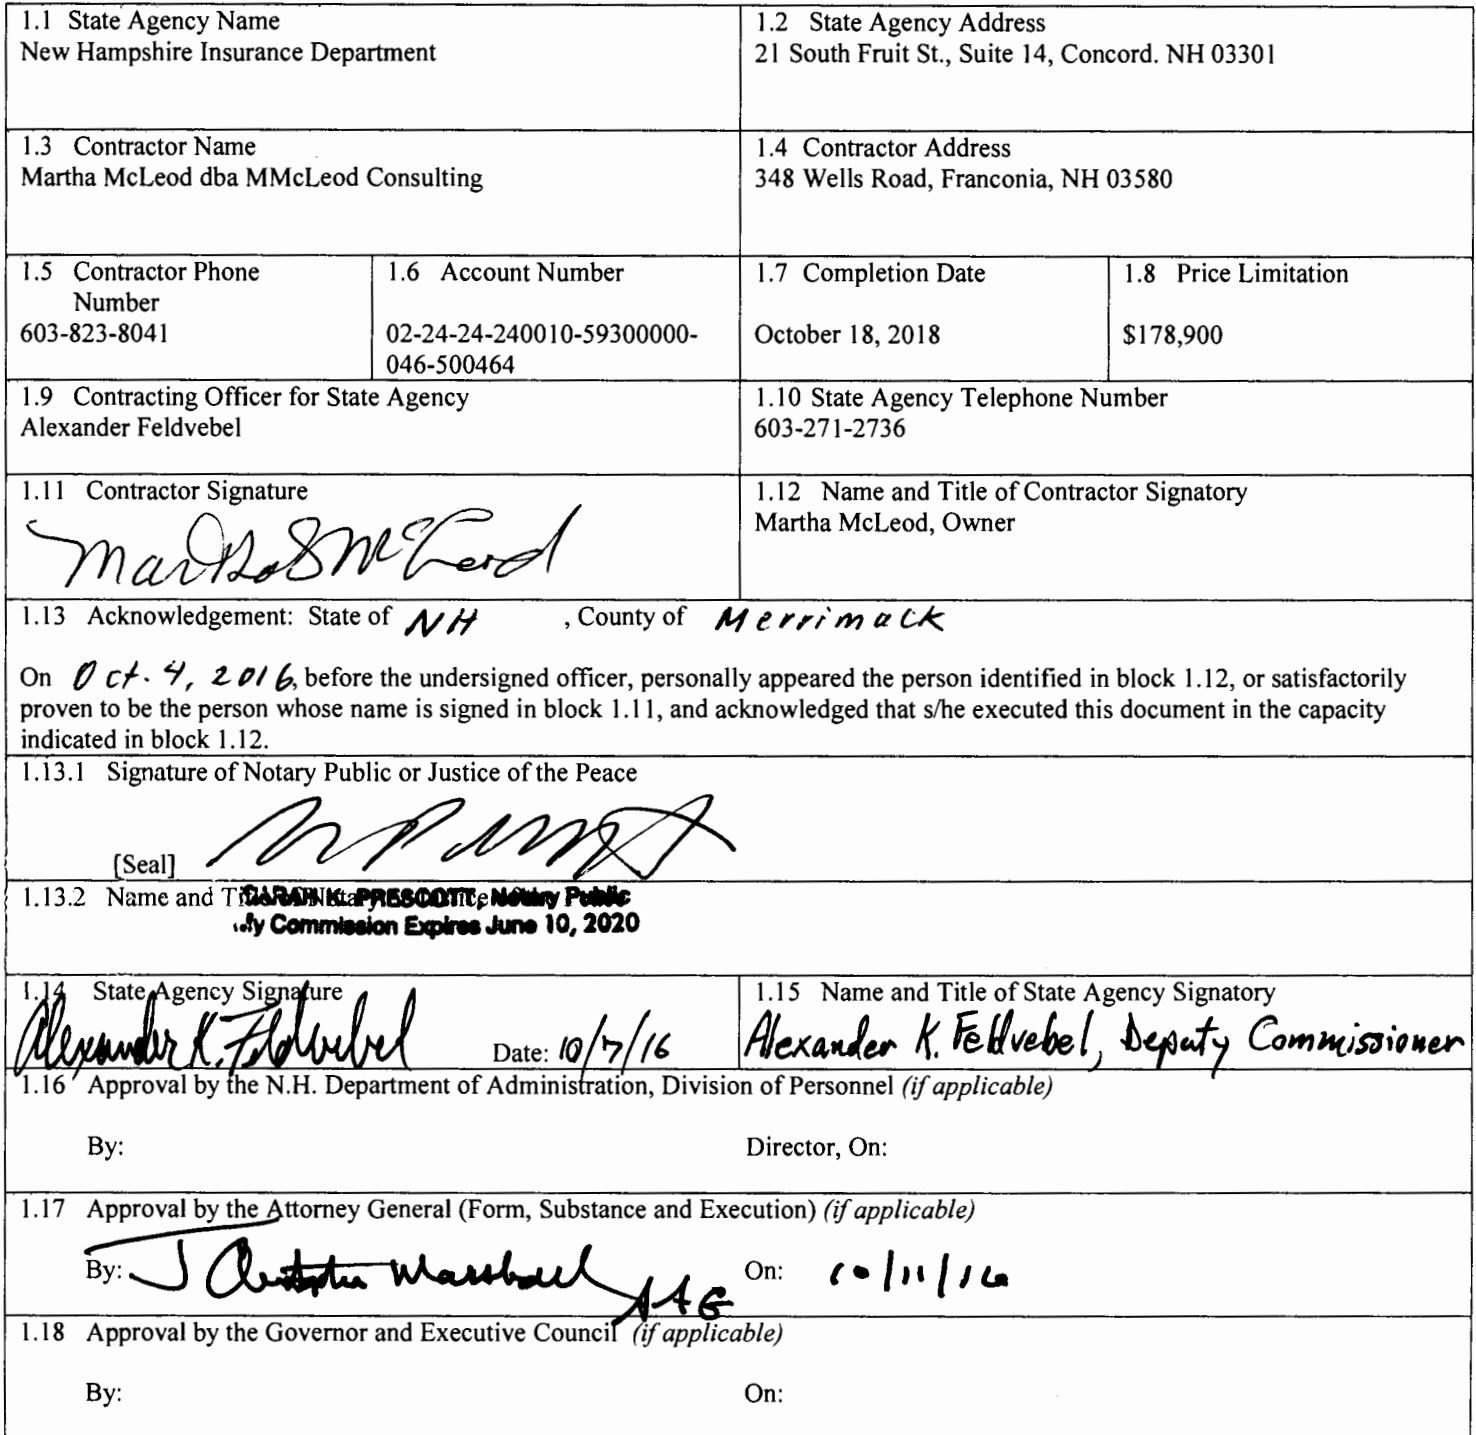 1.1 State Agency Name
New Hampshire Insurance Department
1.2 State Agency Address
21 South Fruit St., Suite 14, Concord. NH 03301
1.3 Contractor Name
Martha McLeod dba MMcLeod Consulting
1.4 Contractor Address
348 Wells Road, Franconia, NH 03580
1.5 Contractor Phone
Number
603-823-8041
1.6 Account Number
02-24-24-240010-59300000-
046-500464
1.7 Completion Date
October 18, 2018
1.8 Price Limitation
$178,900
1.9 Contracting Officer for State Agency
Alexander Feldvebel
1.10 State Agency Telephone Number
603-271-2736
1.11 Contractor Signature
Martha S McLeod
1.12 Name and Title of Contractor Signatory
Martha McLeod, Owner
1.13 Acknowledgement: State of NH , County of Merrimack
On Oct. 4, 2016, before the undersigned officer, personally appeared the person identified in block 1.12, or satisfactorily
proven to be the person whose name is signed in block 1.11, and acknowledged that s/he executed this document in the capacity
indicated in block 1.12.
1.13.1 Signature of Notary Public or Justice of the Peace
[Seal]
1.13.2 Name and
PRESCOTT, Notary Public
Commission Expires June 10, 2020
1.14 State Agency Signature
Alexander K. Feldvebel Date: 10/7/16
1.15 Name and Title of State Agency Signatory
Alexander K. Feldvebel, Deputy Commissioner
1.16 Approval by the N.H. Department of Administration, Division of Personnel (if applicable)
By: Director, On:
1.17 Approval by the Attorney General (Form, Substance and Execution) (if applicable)
By: J Christopher Marshall AAG On: 10/11/16
1.18 Approval by the Governor and Executive Council (if applicable)
By: On: